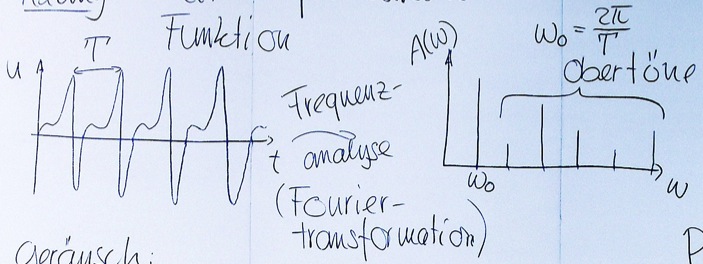 Funktion
T
u
t
Frequenz-
analyse
(Fourier-
transformation)
A(ω)
ω₀ = 2π/T
Obertöne
ω₀
ω
Geräusch:
P